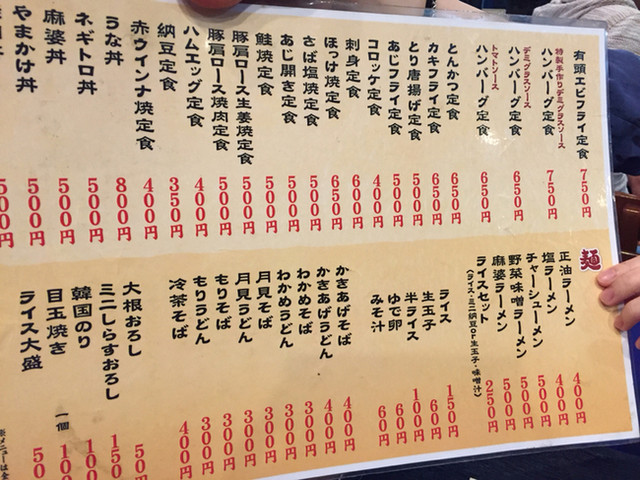 有頭エビフライ定食 750円
特製手作りデミグラスソース
ハンバーグ定食 750円
デミグラスソース
ハンバーグ定食 650円
トマトソース
ハンバーグ定食 650円
とんかつ定食 650円
カキフライ定食 650円
とり唐揚げ定食 500円
あじフライ定食 500円
コロッケ定食 400円
刺身定食 600円
ほっけ焼定食 650円
さば塩焼定食 500円
あじ開き定食 500円
鮭焼定食 500円
豚肩ロース生姜焼定食 500円
豚肩ロース焼肉定食 500円
ハムエッグ定食 400円
納豆定食 350円
赤ウインナ焼定食 400円
うな丼 800円
ネギトロ丼 500円
麻婆丼 500円
やまかけ丼 500円
500円
麺
正油ラーメン 400円
塩ラーメン 400円
チャーシューメン 500円
野菜味噌ラーメン 500円
麻婆ラーメン 500円
ライスセット 250円
(ライス・ミニ納豆or生玉子・味噌汁)
ライス 150円
生玉子 60円
半ライス 100円
ゆで卵 60円
みそ汁 60円
かきあげそば 400円
かきあげうどん 400円
わかめそば 300円
わかめうどん 300円
月見そば 300円
月見うどん 300円
もりそば 300円
もりうどん 300円
冷茶そば 400円
大根おろし 50
ミニしらすおろし 150
韓国のり 100
目玉焼き 一個 100
ライス大盛 50
※メニューは全